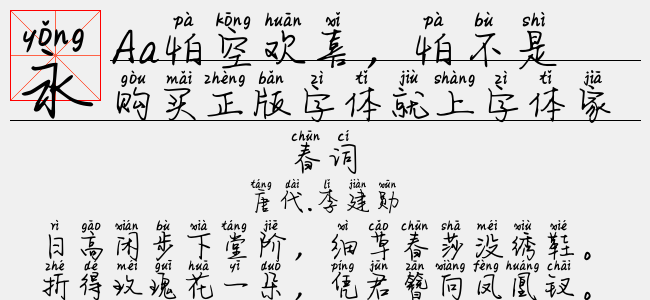 yǒng
永
pà kōng huān xǐ pà bù shì
Aa怕空欢喜，怕不是
gòu mǎi zhèng bǎn zì tǐ jiù shàng zì tǐ jiā
购买正版字体就上字体家
chūn cí
春词
táng dài lǐ jiàn xūn
唐代.李建勋
rì gāo xián bù xià táng jiē xì cǎo chūn shā méi xiù xié
日高闲步下堂阶，细草春莎没绣鞋。
zhé dé méi guī huā yī duǒ píng jūn zān xiàng fèng huáng chāi
折得玫瑰花一朵，凭君簪向凤凰钗。